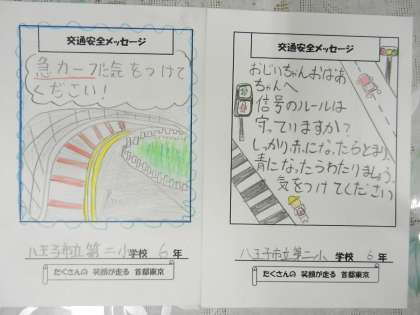 交通安全メッセージ
急カーブに気をつけて
ください!
八王子市立第二小学校 6年
たくさんの 笑顔が走る 首都東京
交通安全メッセージ
おじいちゃんおばあ
ちゃんへ
信号のルールは
守っていますか?
しっかり赤になったらとまり、
青になったらわたりましょう。
気をつけてください
八王子市立第二小学校 6年
たくさんの 笑顔が走る 首都東京